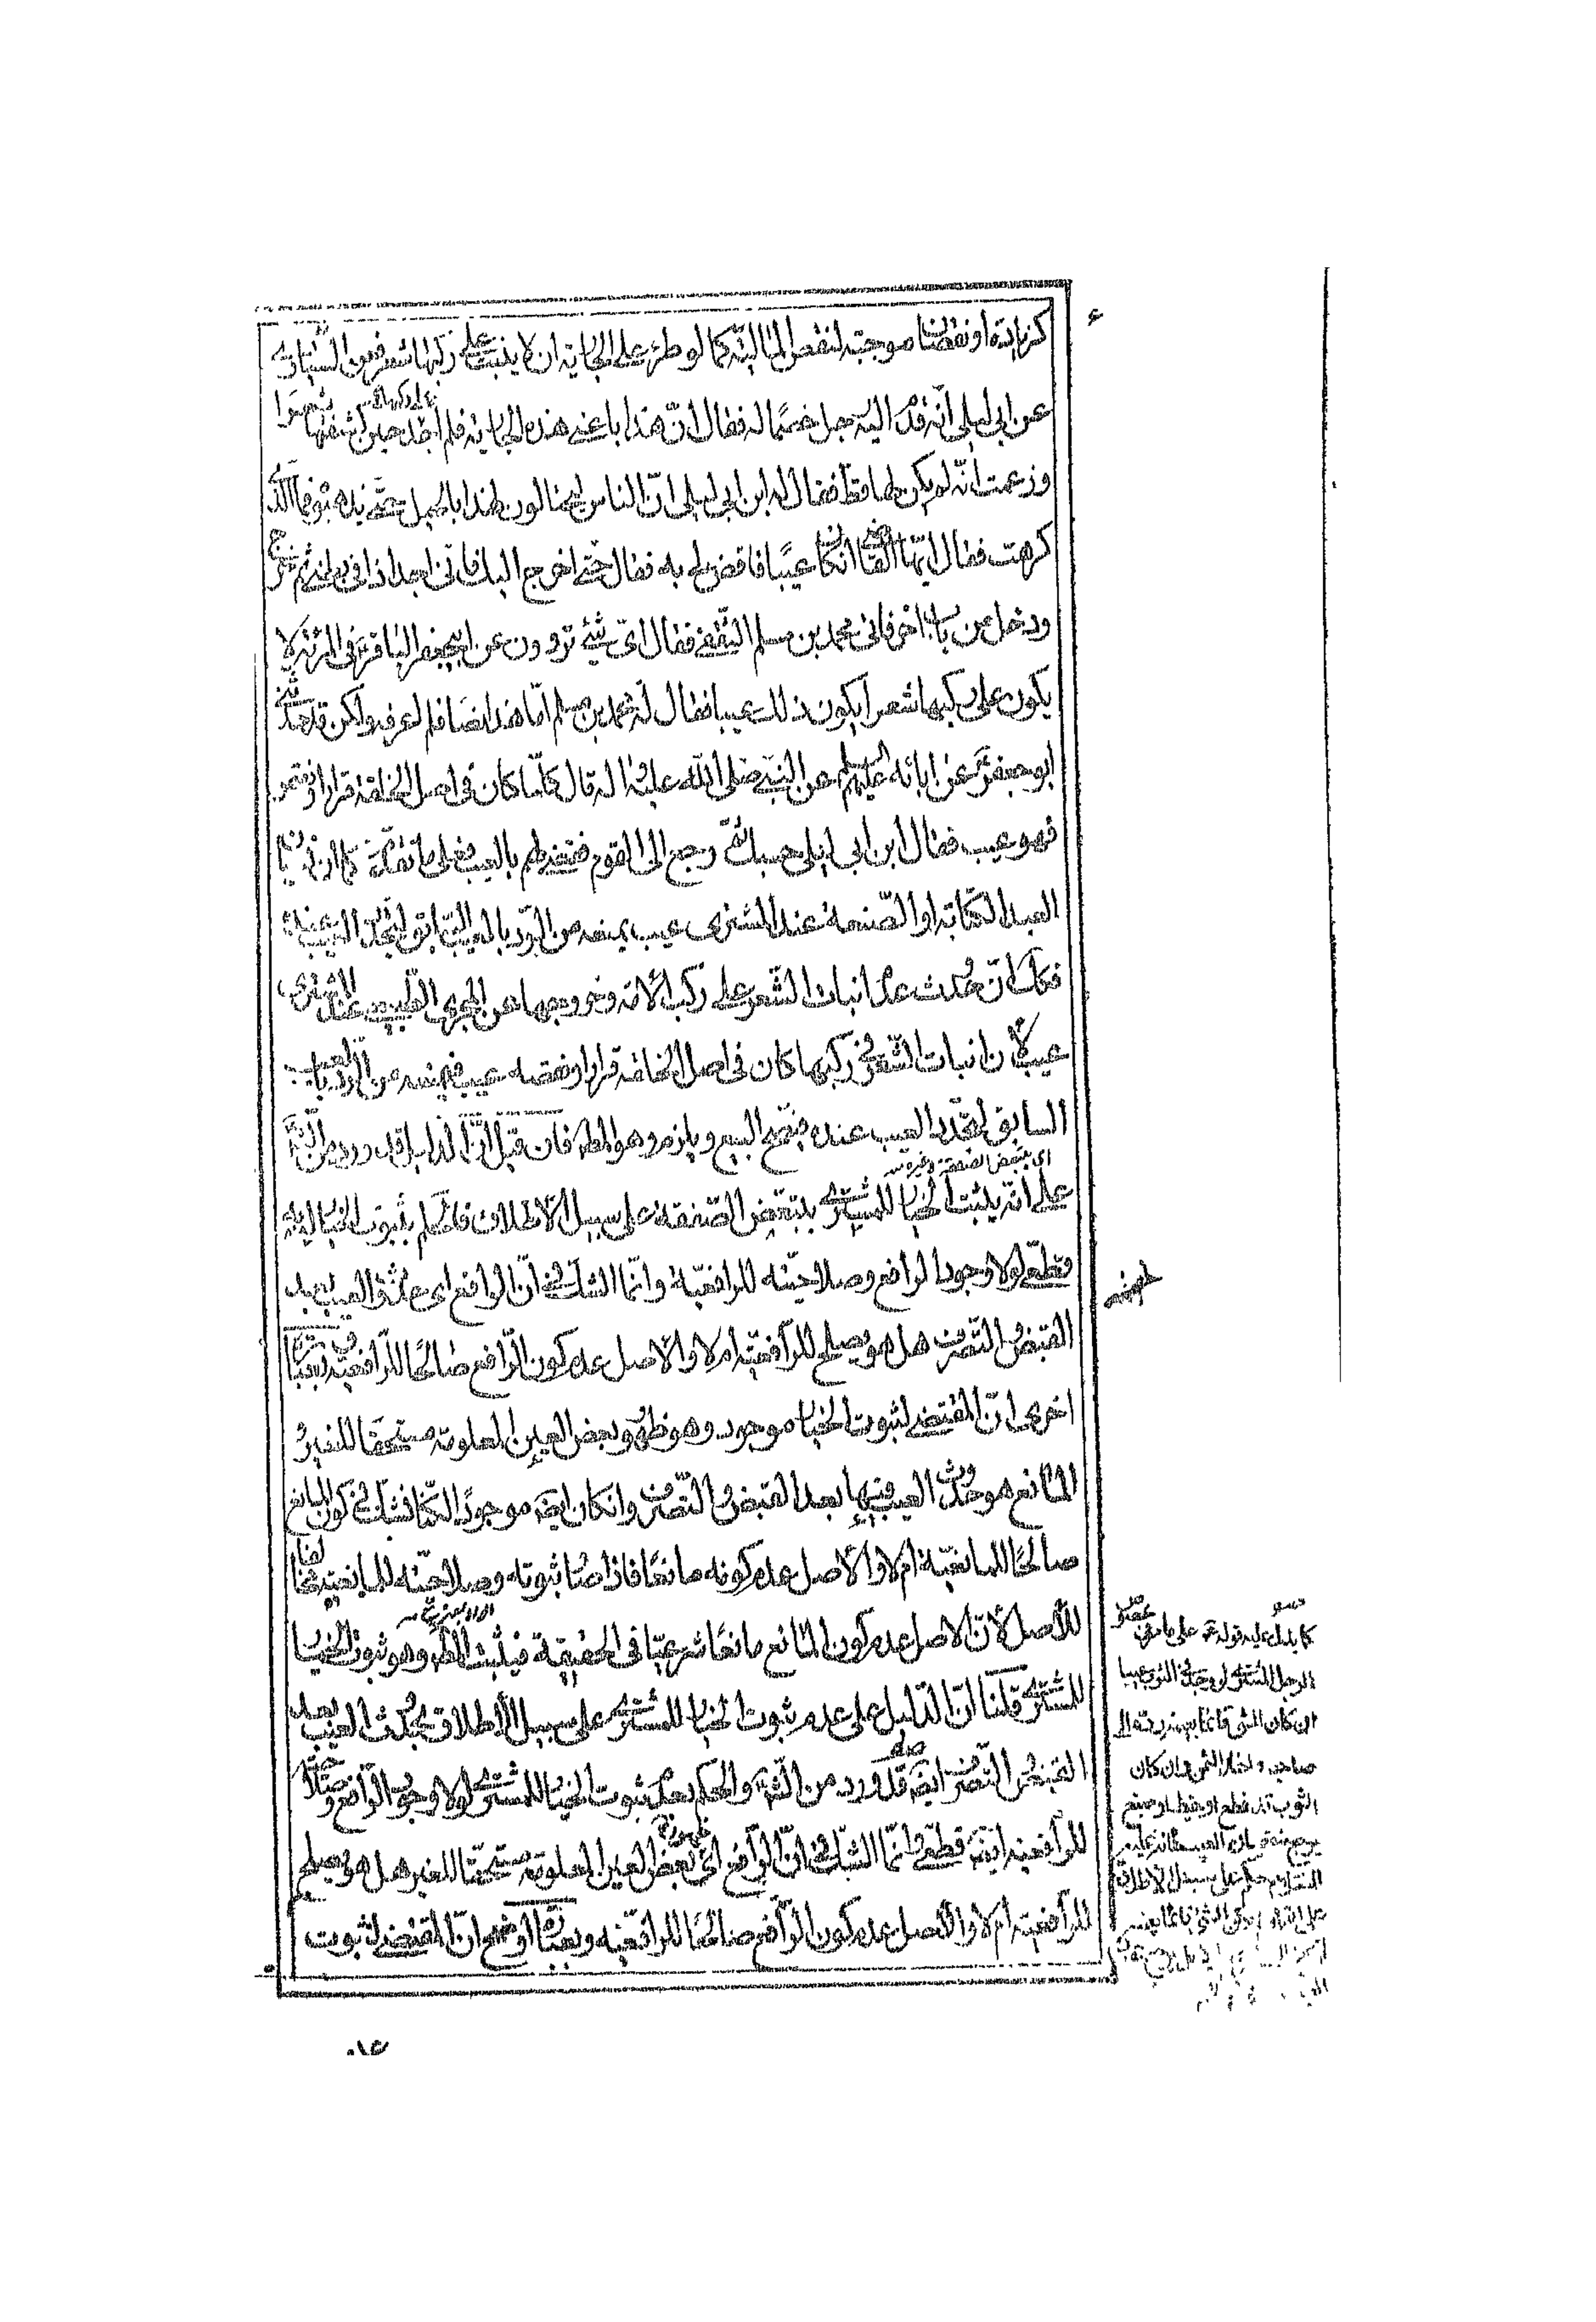 كزيادة او نقصان موجبة لنقص المالية كما لو طرء على الجارية ان لا ينبت على ركبها شعر فعن السياري
عن ابن ابى ليلى انّه قدّم اليه رجل خصمًا له فقال انّ هذا باعنى هذه الجارية فلم اجد على ركبها حين كشفتها شعرا
وزعمت انّه لم يكن لها قط فقال له ابن ابى ليلى انّ الناس ليحتالون لهذا بالحيل حتّى يذهبوه فما الذى
كرهت فقال ايّها القاضى ان كان عيبًا فاقض لى به فقال حتّى اخرج اليك فانّى اجد اذى فى بطنى ثم خرج
ودخل من باب اخر فاتى محمد بن مسلم الثقفى فقال اىّ شىء تروون عن ابى جعفر الباقر فى المرئة لا
يكون على ركبها شعر ايكون ذلك عيبا فقال له محمد بن مسلم امّا هذا نصا فلم اعرفه ولكن قد حدّثنى
ابو جعفر عن ابائه عليهم السلام عن النبى صلى الله عليه واله قال كلّما كان فى اصل الخلقة فزاد او نقص
فهو عيب فقال ابن ابى ليلى حسبك ثمّ رجع الى القوم فقضى لهم بالعيب فعلى ما تقدّم كما ان نسيان
العبد الكتابة او الصّنعة عند المشترى عيب يمنعه من الردّ بالعيب السّابق لتجدّد العيب عنده
فكذلك ان حدث عدم انبات الشّعر على ركب الامة وخروجها عن المجرى الطبيعى عند المشترى
عيب لان انبات الشّعر فى ركبها كان فى اصل الخلقة فزاد او نقصه عيب فيمنعه من الردّ بالعيب
السابق لتجدّد العيب عنده فيصّح البيع ويلزم وهو المط فان قيل انّ الدليل قد ورد من الشّرع
على انّه يثبت الخيار للمشترى بتبعّض الصّفقة على سبيل الاطلاق فالحكم بثبوت الخيار له
اى بتبعّض الصفقة وغيره
قطعى لولا وجود الرافع وصلاحيّته للرافعيّة وانّما الشك فى انّ الرافع اى حدوث العيب بعد
القبض والتّصرّف هل هو يصلح للرّافعيّة ام لا والاصل عدم كون الرّافع صالحًا للرّافعيّة وبعبارة
اخرى انّ المقتضى لثبوت الخيار موجود وهو ظهور بعض العين المعلومة مستحقّا للغير و
المانع هو حدوث العيب فيها بعد القبض والتّصرّف وان كان ايضا موجودًا لكنّا نشك فى كون المانع
صالحًا للمانعيّة ام لا والاصل عدم كونه مانعًا فاذا ثبوته وصلاحيّته للمانعيّة مخالفا
للاصل لانّ الاصل عدم كون المانع مانعًا شرعيّا فى الحقيقة فيثبت المط وهو ثبوت الخيار
للمشترى قلنا انّ الدّليل على عدم ثبوت الخيار للمشترى على سبيل الاطلاق بحدوث العيب بعد
القبض والتّصرّف ايضا قد ورد من الشّرع والحكم بعدم ثبوت الخيار للمشترى لولا وجود الرّافع وصلاحيّته
للرّافعيّة ايضا قطعى وانّما الشّك فى انّ الرّافع اى ظهور بعض العين المعلومة مستحقّا للغير هل هو يصلح
للرّافعيّة ام لا والاصل عدم كون الرّافع صالحًا للرّافعيّة وبعبارة اوضح انّ المقتضى لثبوت
كما يدل عليه قوله على ما
الرجل المشترى لو وجد فى الثوب عيبا
ان كان الشى قائما بعينه رده الى
صاحبه واخذ الثمن وان كان
الثوب قد قطع او خيط او صبغ
يرجع بنقصان العيب فانه عليه
السلام حكم على سبيل الاطلاق